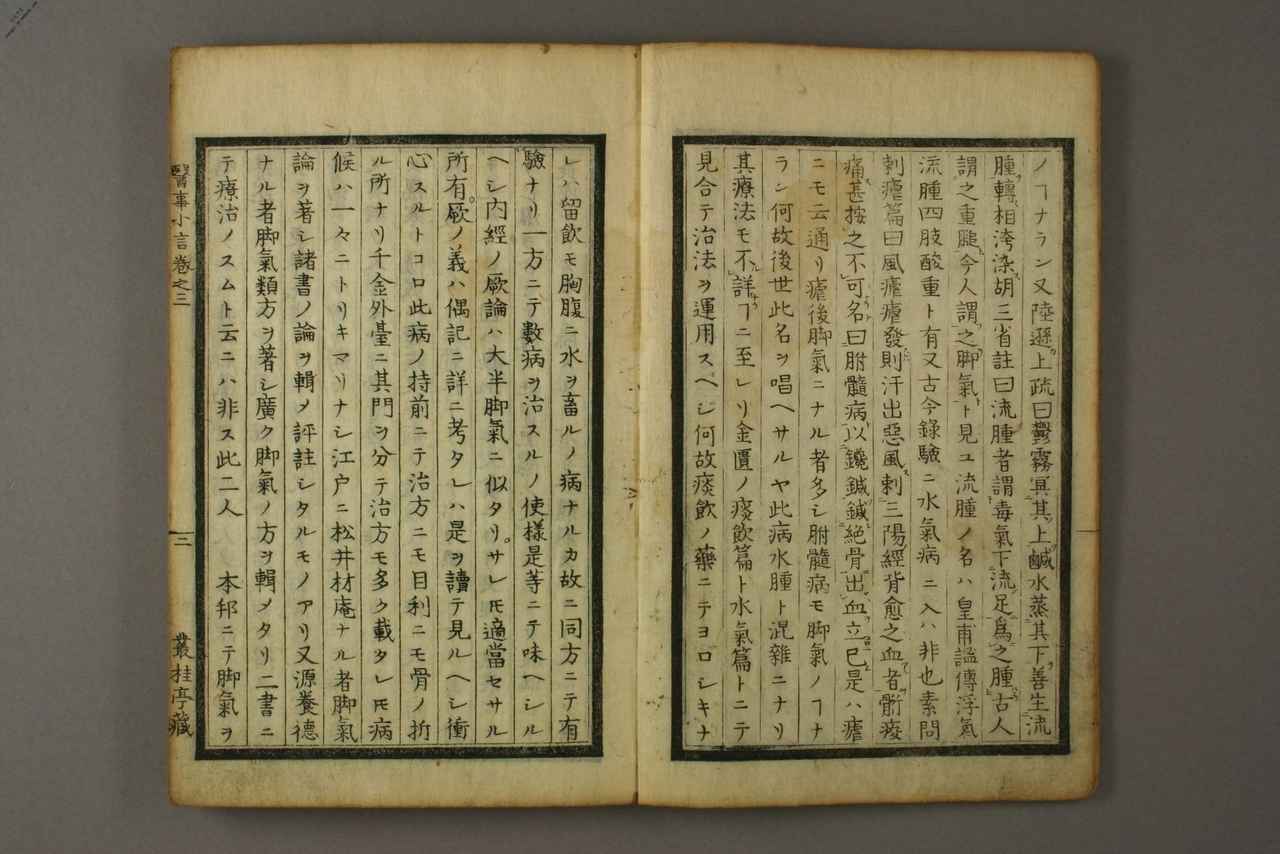 ノヿナラン又陸遜上疏曰鬱霧冥其上鹹水蒸其下善生流
腫轉相洿染胡三省註曰流腫者謂毒氣下流足爲之腫古人
謂之重膇今人謂之脚氣ト見ユ流腫ノ名ハ皇甫謐傳浮氣
流腫四肢酸重ト有又古今錄驗ニ水氣病ニ入ハ非也素問
刺瘧篇曰風瘧瘧發則汗出惡風刺三陽經背愈之血者䯒痠
痛甚按之不可名曰胕髓病以鑱鍼鍼絶骨出血立已是ハ瘧
ニモ云通リ瘧後脚氣ニナル者多シ胕髓病モ脚氣ノヿナ
ラン何故後世此名ヲ唱ヘサルヤ此病水腫ト混雜ニナリ
其療法モ不詳ヿニ至レリ金匱ノ痰飮篇ト水氣篇トニテ
見合テ治法ヲ運用スベシ何故痰飮ノ藥ニテヨロシキナ
レハ留飮モ胸腹ニ水ヲ畜ルノ病ナルカ故ニ同方ニテ有
驗ナリ一方ニテ數病ヲ治スルノ使樣是等ニテ味ヘシル
ヘシ内經ノ厥論ハ大半脚氣ニ似タリサレ𪜈適當セサル
所有厥ノ義ハ偶記ニ詳ニ考タレハ是ヲ讀テ見ルヘシ衝
心スルトコロ此病ノ持前ニテ治方ニモ目利ニモ骨ノ折
ル所ナリ千金外臺ニ其門ヲ分テ治方モ多ク載タレ𪜈病
候ハ一々ニトリキマリナシ江戸ニ松井材庵ナル者脚氣
論ヲ著シ諸書ノ論ヲ輯メ評註シタルモノアリ又源養德
ナル者脚氣類方ヲ著シ廣ク脚氣ノ方ヲ輯メタリ二書ニ
テ療治ノスムト云ニハ非ス此二人　本邦ニテ脚氣ヲ
醫事小言卷之三
三
叢桂亭藏